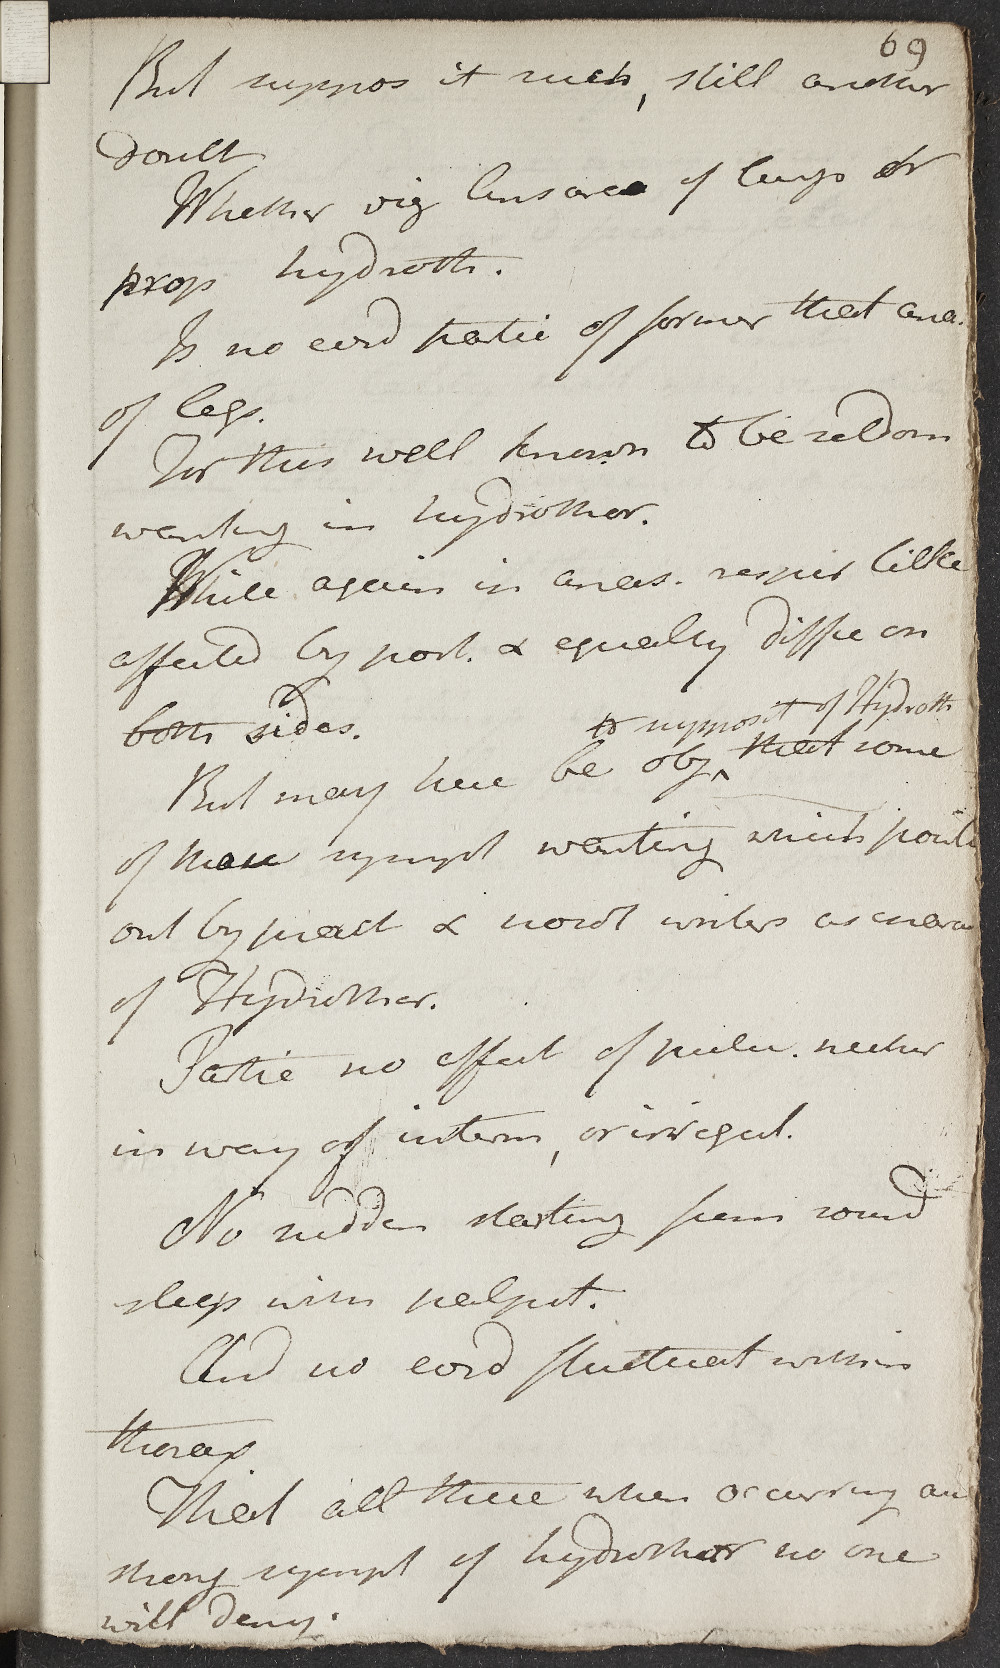 69
But suppos it such, still another
doubt
Whether vig anasarca of lungs or
prop hydroth.
Is no evid partic of former that ana.
of legs.
For this well known to be seldom
wanting in hydrothor.
While again in anas. respir little
affected by post. & equally diffic on
both sides.
to supposit of Hydroth
But may here be obj. that some
of these sympt wanting which point
out by pract & nosol writers as charac
of Hydrothor.
Partic no affect of pulse. neither
in way of interm, or irregul.
No sudden starting from sound
sleep with palpit.
And no evid fluctuat within
thorax
That all these when occurring are
strong sympt of hydrothor no one
will deny.